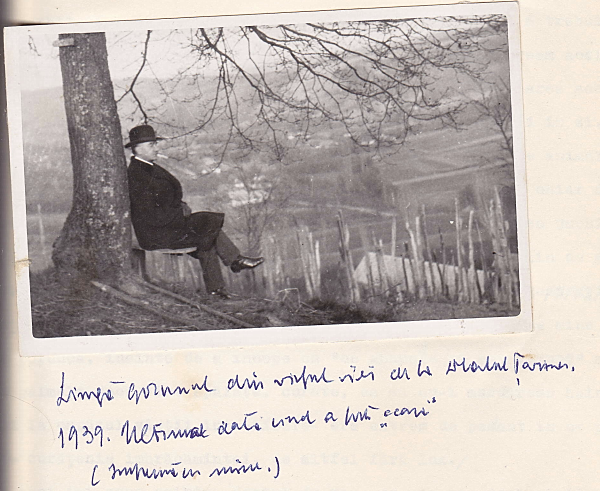 Lîngă gorunul din vîrful viei de la Dealul Țarinei.
1939. Ultima dată cînd a fost „acasă”
(împreună cu mine.)